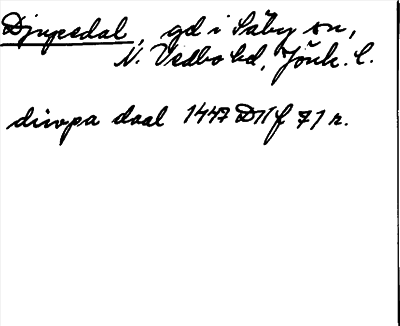 Djupedal, gd i Säby sn,
N. Vedbo hd, Jönk. l.
diwpa daal 1447 DHf 71 r.